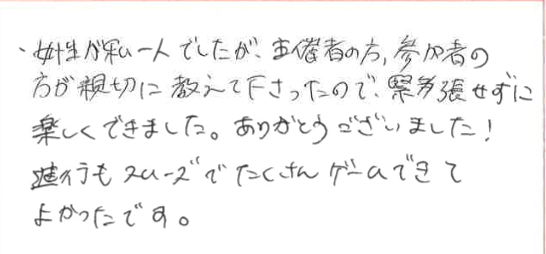 ・女性が私一人でしたが、主催者の方、参加者の
方が親切に教えて下さったので、緊張せずに
楽しくできました。ありがとうございました！
進行もスムーズでたくさんゲームできて
よかったです。